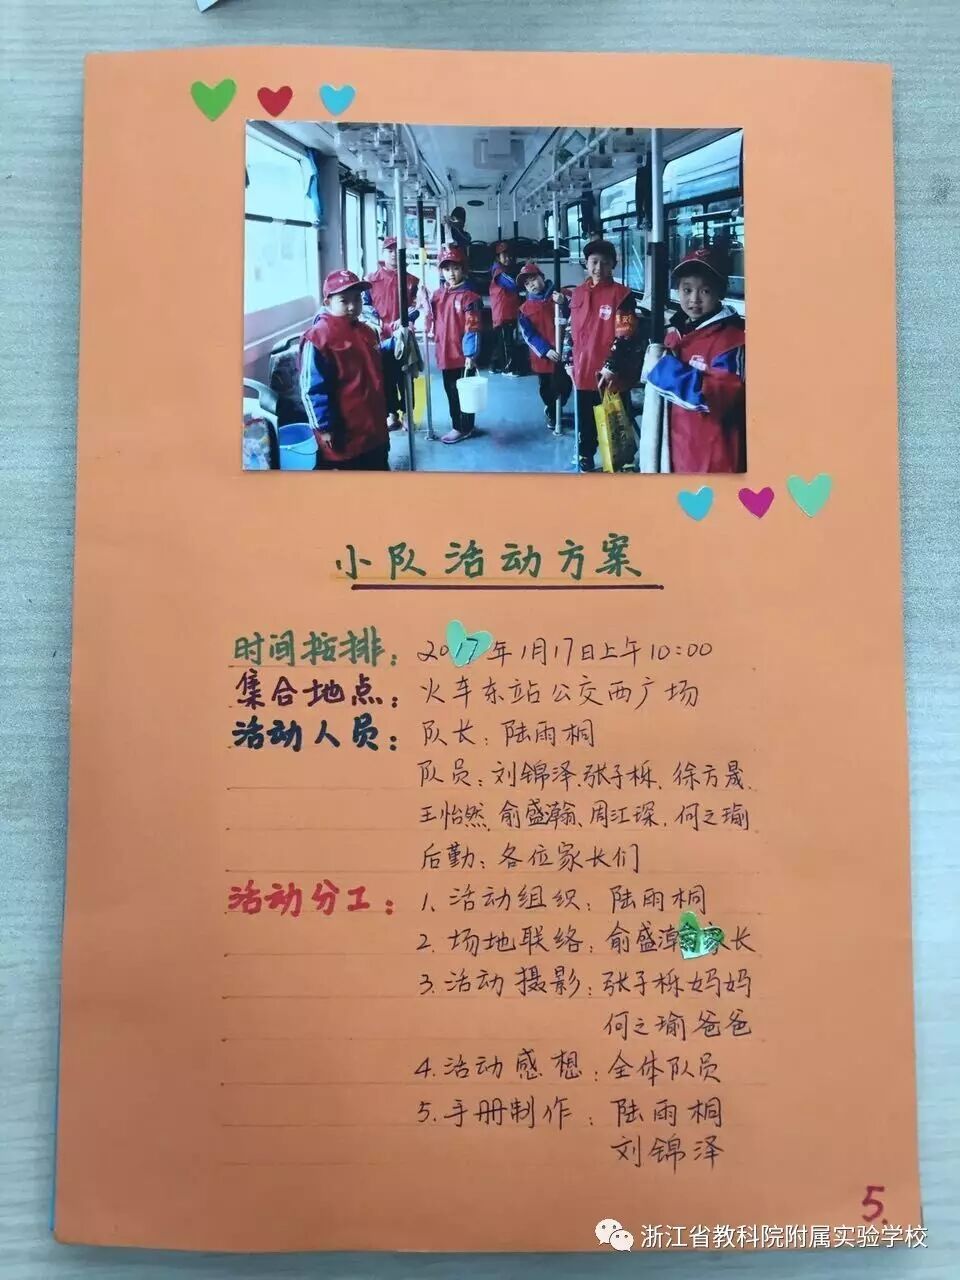 小队活动方案
时间按排：2017年1月17日上午10:00
集合地点：火车东站公交西广场
活动人员：队长：陆雨桐
队员：刘锦泽、张子栎、徐方晟、
王怡然、俞盛瀚、周江琛、何之瑜
后勤：各位家长们
活动分工：1.活动组织：陆雨桐
2.场地联络：俞盛瀚家长
3.活动摄影：张子栎妈妈
何之瑜爸爸
4.活动感想：全体队员
5.手册制作：陆雨桐
刘锦泽
5.
浙江省教科院附属实验学校